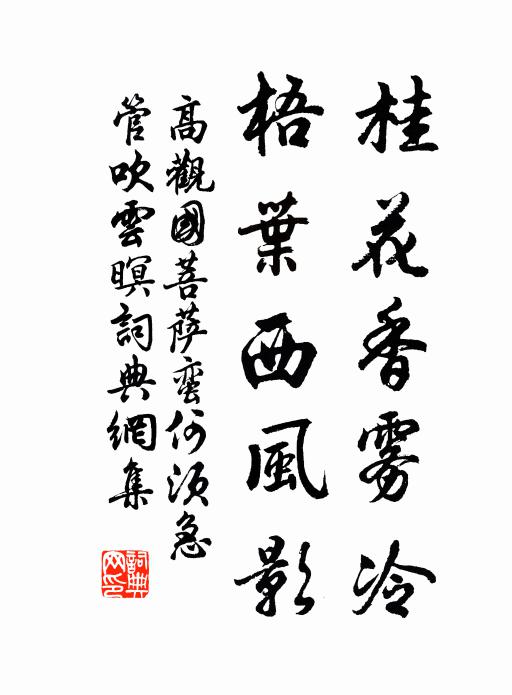 桂花香雾冷
梧葉西風影
高觀國菩薩蠻何須急
管吹雲暝詞典網集
詞典网印